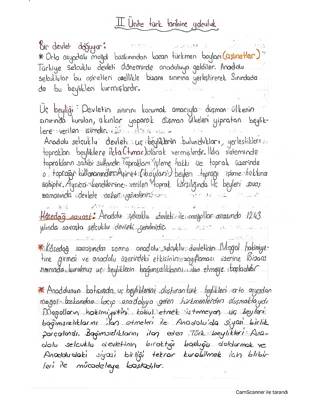 II. Ünite türk tarihine yolculuk
Bir devlet doğuyor:
* Orta asyadaki moğol baskısından kaçan türkmen boyları (aşiretler)
Türkiye selçuklu devleti döneminde anadoluya geldiler. Anadolu
selçuklular bu aşiretleri özellikle bizans sınırına yerleştirerek Sınırlarda
da bu beylikleri kurmuşlardır.
Uç beyliği: Devletin sınırını korumak amacıyla düşman ülkenin
sınırında kurulan, akınlar yaparak düşman ülkeleri yıpratan beylik-
lere verilen isimdir.
Anadolu selçuklu devleti uç beyliklerin bulundukları, yerleştikleri
toprakları beyliklere olarak vermişlerdir. sisteminde
toprakların sahibi toprakları işleme hakkı ve toprak üzerinde
o toprağı kullananındır. Aşiret (boyları) beyleri toprağı işleme hakkına
sahiptir. Ayrıca kendilerine verilen toprak karşılığında beyleri savaş
zamanında devlete asker
Kösedağ savaşı: Anadolu selçuklu devleti ile moğollar arasında 1243
yılında savaşta selçuklu devleti yenilmiştir.
* Kösedağ savaşından sonra anadolu selçuklu devletinin Moğol hakimiye-
tine girmesi ve anadolu üzerindeki etkisinin zayıflaması üzerine Bizans
sınırında kurulmuş uç beyliklerin bağımsızlıklarını ilan etmeye başladılar.
* Anadolunun batısında uç beyliklerini oluşturan türk beylikleri orta asyadan
moğol baskısından kaçıp anadoluya gelen türkmenlerden oluşmaktaydı
Moğolların hakimiyetini kabul etmek istemeyen uç beyleri
bağımsızlıklarını ilan etmeleri ile Anadolu'da siyasi birlik
parçalandı. Bağımsızlıklarını ilan eden Türk beylikleri Ana-
dolu selçuklu devletinin bıraktığı boşluğu doldurmak ve
Anadoludaki siyasi birliği tekrar kurabilmek için birbir-
leri ile mücadeleye başladılar.
CamScanner ile tarandı